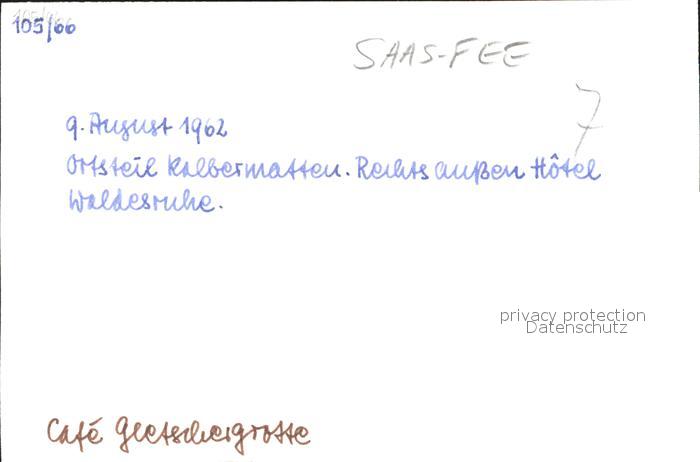 105/66
SAAS-FEE
7
9. August 1962
Ortsteil Kalbermatten. Rechts außen Hôtel
Waldesruhe.
privacy protection
Datenschutz
Café Gletschergrotte